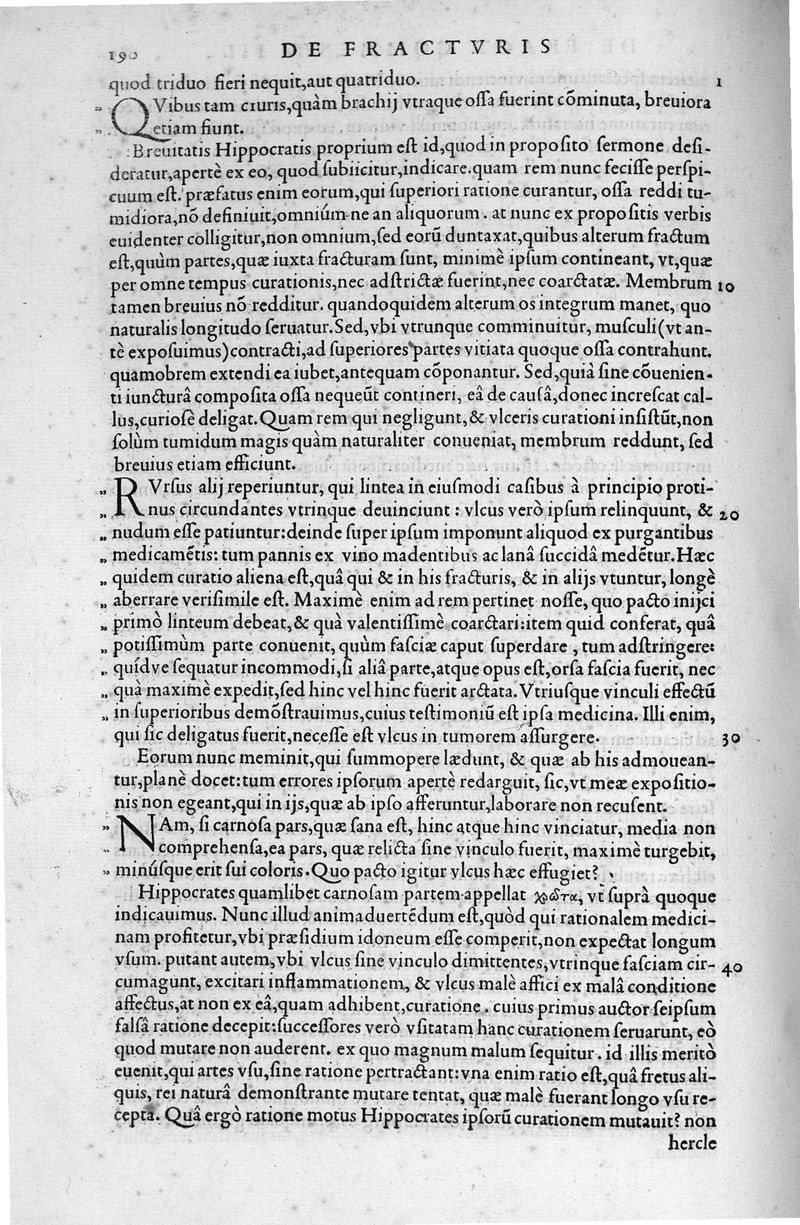 190 DE FRACTVRIS
quod triduo fieri nequit,aut quatriduo. 1
„ QVibus tam cruris,quàm brachij vtraque ossa fuerint cõminuta, breuiora
„ etiam fiunt.
Breuitatis Hippocratis proprium est id,quod in proposito sermone desi-
deratur,apertè ex eo, quod subiicitur,indicare.quam rem nunc fecisse perspi-
cuum est. præfatus enim eorum,qui superiori ratione curantur, ossa reddi tu-
midiora,nõ definiuit,omniúm ne an aliquorum. at nunc ex propositis verbis
euidenter colligitur,non omnium,sed eorũ duntaxat,quibus alterum fractum
est,quùm partes,quæ iuxta fracturam sunt, minimè ipsum contineant, vt,quæ
per omne tempus curationis,nec adstrictæ fuerint,nec coarctatæ. Membrum 10
tamen breuius nõ redditur. quandoquidem alterum os integrum manet, quo
naturalis longitudo seruatur.Sed,vbi vtrunque comminuitur, musculi(vt an-
tè exposuimus)contracti,ad superiores partes vitiata quoque ossa contrahunt.
quamobrem extendi ea iubet,antequam cõponantur. Sed,quià sine cõuenien-
ti iuncturâ composita ossa nequeũt contineri, eâ de causâ,donec increscat cal-
lus,curiosè deligat.Quam rem qui negligunt,& vlceris curationi insistũt,non
solùm tumidum magis quàm naturaliter conueniat, membrum reddunt, sed
breuius etiam efficiunt.
„ RVrsus alij reperiuntur, qui lintea in eiusmodi casibus à principio proti-
„ nus circundantes vtrinque deuinciunt : vlcus verò ipsum relinquunt, & 20
„ nudum esse patiuntur:deinde super ipsum imponunt aliquod ex purgantibus
„ medicamẽtis: tum pannis ex vino madentibus ac lanâ succidâ medẽtur.Hæc
„ quidem curatio aliena est,quâ qui & in his fracturis, & in alijs vtuntur, longè
„ aberrare verisimile est. Maximè enim ad rem pertinet nosse, quo pacto inijci
„ primò linteum debeat,& quà valentissimè coarctari:item quid conferat, quâ
„ potissimùm parte conuenit, quùm fasciæ caput superdare , tum adstringere:
„ quídve sequatur incommodi,si aliâ parte,atque opus est,orsa fascia fuerit, nec
„ quà maximè expedit,sed hinc vel hinc fuerit arctata. Vtriusque vinculi effectũ
„ in superioribus demõstrauimus,cuius testimoniũ est ipsa medicina. Illi enim,
qui sic deligatus fuerit,necesse est vlcus in tumorem assurgere. 30
Eorum nunc meminit,qui summopere lædunt, & quæ ab his admouean-
tur,planè docet:tum errores ipsorum apertè redarguit, sic,vt meæ expositio-
nis non egeant,qui in ijs,quæ ab ipso afferuntur,laborare non recusent.
„ NAm, si carnosa pars,quæ sana est, hinc atque hinc vinciatur, media non
„ comprehensa,ea pars, quæ relicta sine vinculo fuerit, maximè turgebit,
„ minúsque erit sui coloris. Quo pacto igitur vlcus hæc effugiet?
Hippocrates quamlibet carnosam partem appellat χρῶτα, vt suprà quoque
indicauimus. Nunc illud animaduertẽdum est,quòd qui rationalem medici-
nam profitetur,vbi præsidium idoneum esse comperit,non expectat longum
vsum. putant autem,vbi vlcus sine vinculo dimittentes,vtrinque fasciam cir- 40
cumagunt, excitari inflammationem, & vlcus malè affici ex malâ conditione
affectus,at non ex eâ,quam adhibent,curatione. cuius primus auctor seipsum
falsâ ratione decepit:successores verò vsitatam hanc curationem seruarunt, eò
quod mutare non auderent. ex quo magnum malum sequitur. id illis meritò
euenit,qui artes vsu,sine ratione pertractant:vna enim ratio est,quâ fretus ali-
quis, rei naturâ demonstrante mutare tentat, quæ malè fuerant longo vsu re-
cepta. Quâ ergò ratione motus Hippocrates ipsorũ curationem mutauit? non
hercle